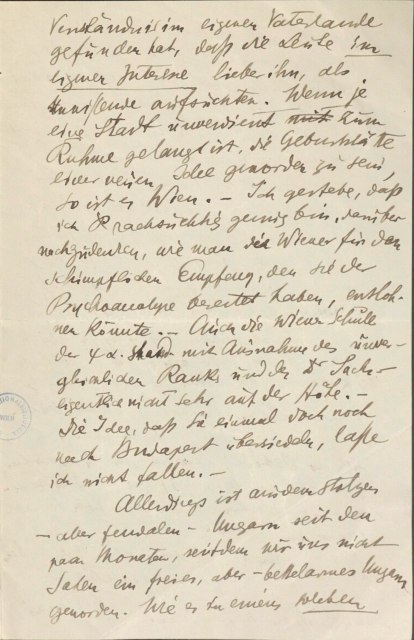 Verständnis im eigenen Vaterlande
gefunden hat, daß die Leute im
eigenen Interesse lieber ihn, als
Unwissende aufsuchten. Wenn je
eine Stadt unverdient mit zum
Ruhme gelangt ist, die Geburtsstätte
einer neuen Idee geworden zu sein,
so ist es Wien. – Ich gestehe, daß
ich rachsüchtig genug bin, darüber
nachzudenken, wie man die Wiener für den
schimpflichen Empfang, den sie der
Psychoanalyse bereitet haben, entloh-
nen könnte. – Auch die Wiener Schule
der ψα. mit Ausnahme des unver-
gleichlichen Ranks und des Dr Sachs –
eigentlich nicht sehr auf der Höhe. –
Die Idee, daß Sie einmal doch noch
nach Budapest übersiedeln, lasse
ich nicht fallen. –
Allerdings ist aus dem stolzen
– aber feudalen – Ungarn seit den
paar Monaten, seitdem wir uns nicht
sahen ein freies, aber – bettelarmes Ungarn
geworden. Wie es zu einem solchen